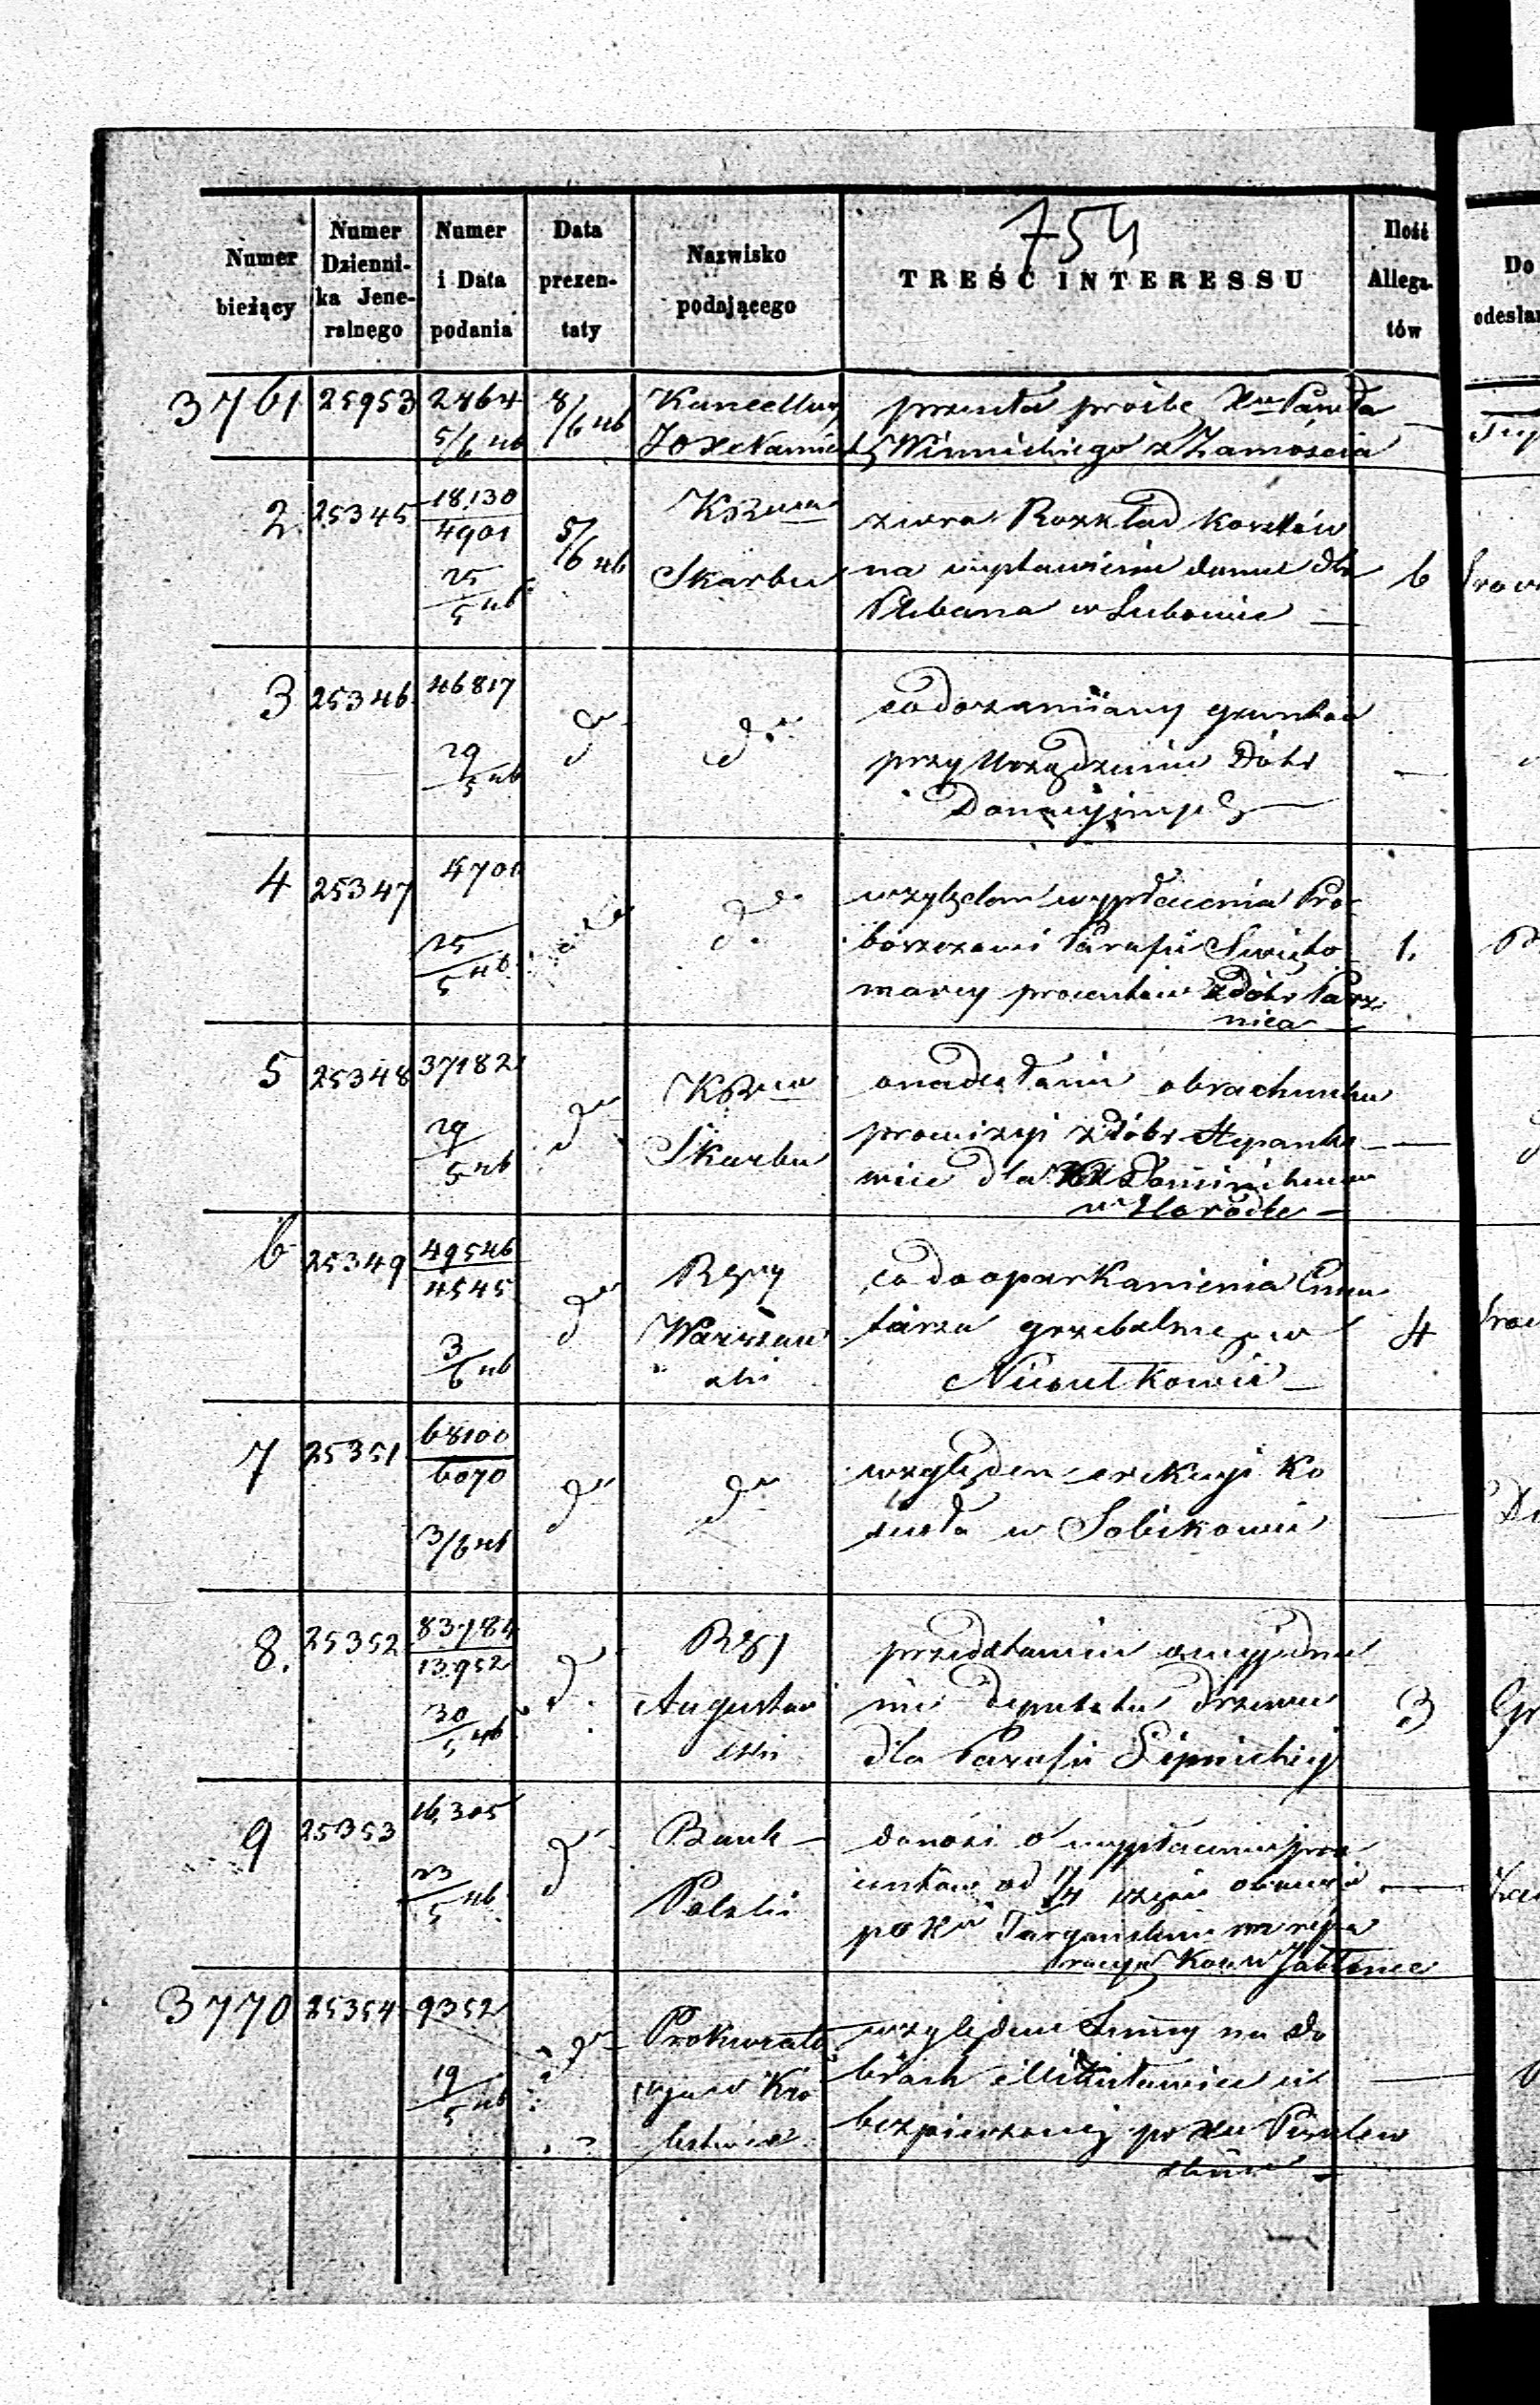 754
Numer bieżący
Numer Dzienni-ka Jene-ralnego
Numer i Data podania
Data prezen-taty
Nazwisko podającego
TREŚĆ INTERESSU
Ilość Allega-tów
Do
odesłan
3761 25953 2464 5/6 46 8/6 46 przesła prośbę Xa Pawła
Winnickiego z Zamościa
2 25345 18,130 4901 25/5 46 5/6 46 KRwa Skarbu
zwra Rozkład kosztów
na wystawienie domu dla 6
Plebana w Lubowie —
3 25346 46817 29/5 46 do do
co do zamiany gruntów
przy Urządzeniu Dóbr —
Donacyjnych
4 25347 4700 25/5 46 do do
względem wypłacenia Pro-
boszczowi Parafii Święto 1.
marcy procentów z dóbr Parz-
nica —
5 25348 37182 29/5 46 do KRwa Skarbu
o nadesłanie obrachunku
prowizyi z dóbr Stepanko —
wice dla XX Dominikanów
w Horodle —
6 25349 49546 4545 3/6 46 do Rząy Warszaw ski
co do oparkanienia Cmen
tarza grzebalnego w 4
Niesułkowie —
7 25351 68100 6070 3/6 46 do do
względem erekcyi Ko
ścioła w Sobikowie —
8. 25352 83784 13952 30/5 46 do Rzą Augustow ski
przedstawie
nie deputatu drzewa 3
dla Parafii Lipnickiej
9 25353 16,305 23/5 46 do Bank — Polski
donosi o wypłaceniu pro
centów od —
po Xu na repa
racyą Koła w Jabłonce
3770 25354 9352 19/5 46 do Prokurato rya w Kró lestwie
względem Summy na do
brach —
bezpieczonej po Xu